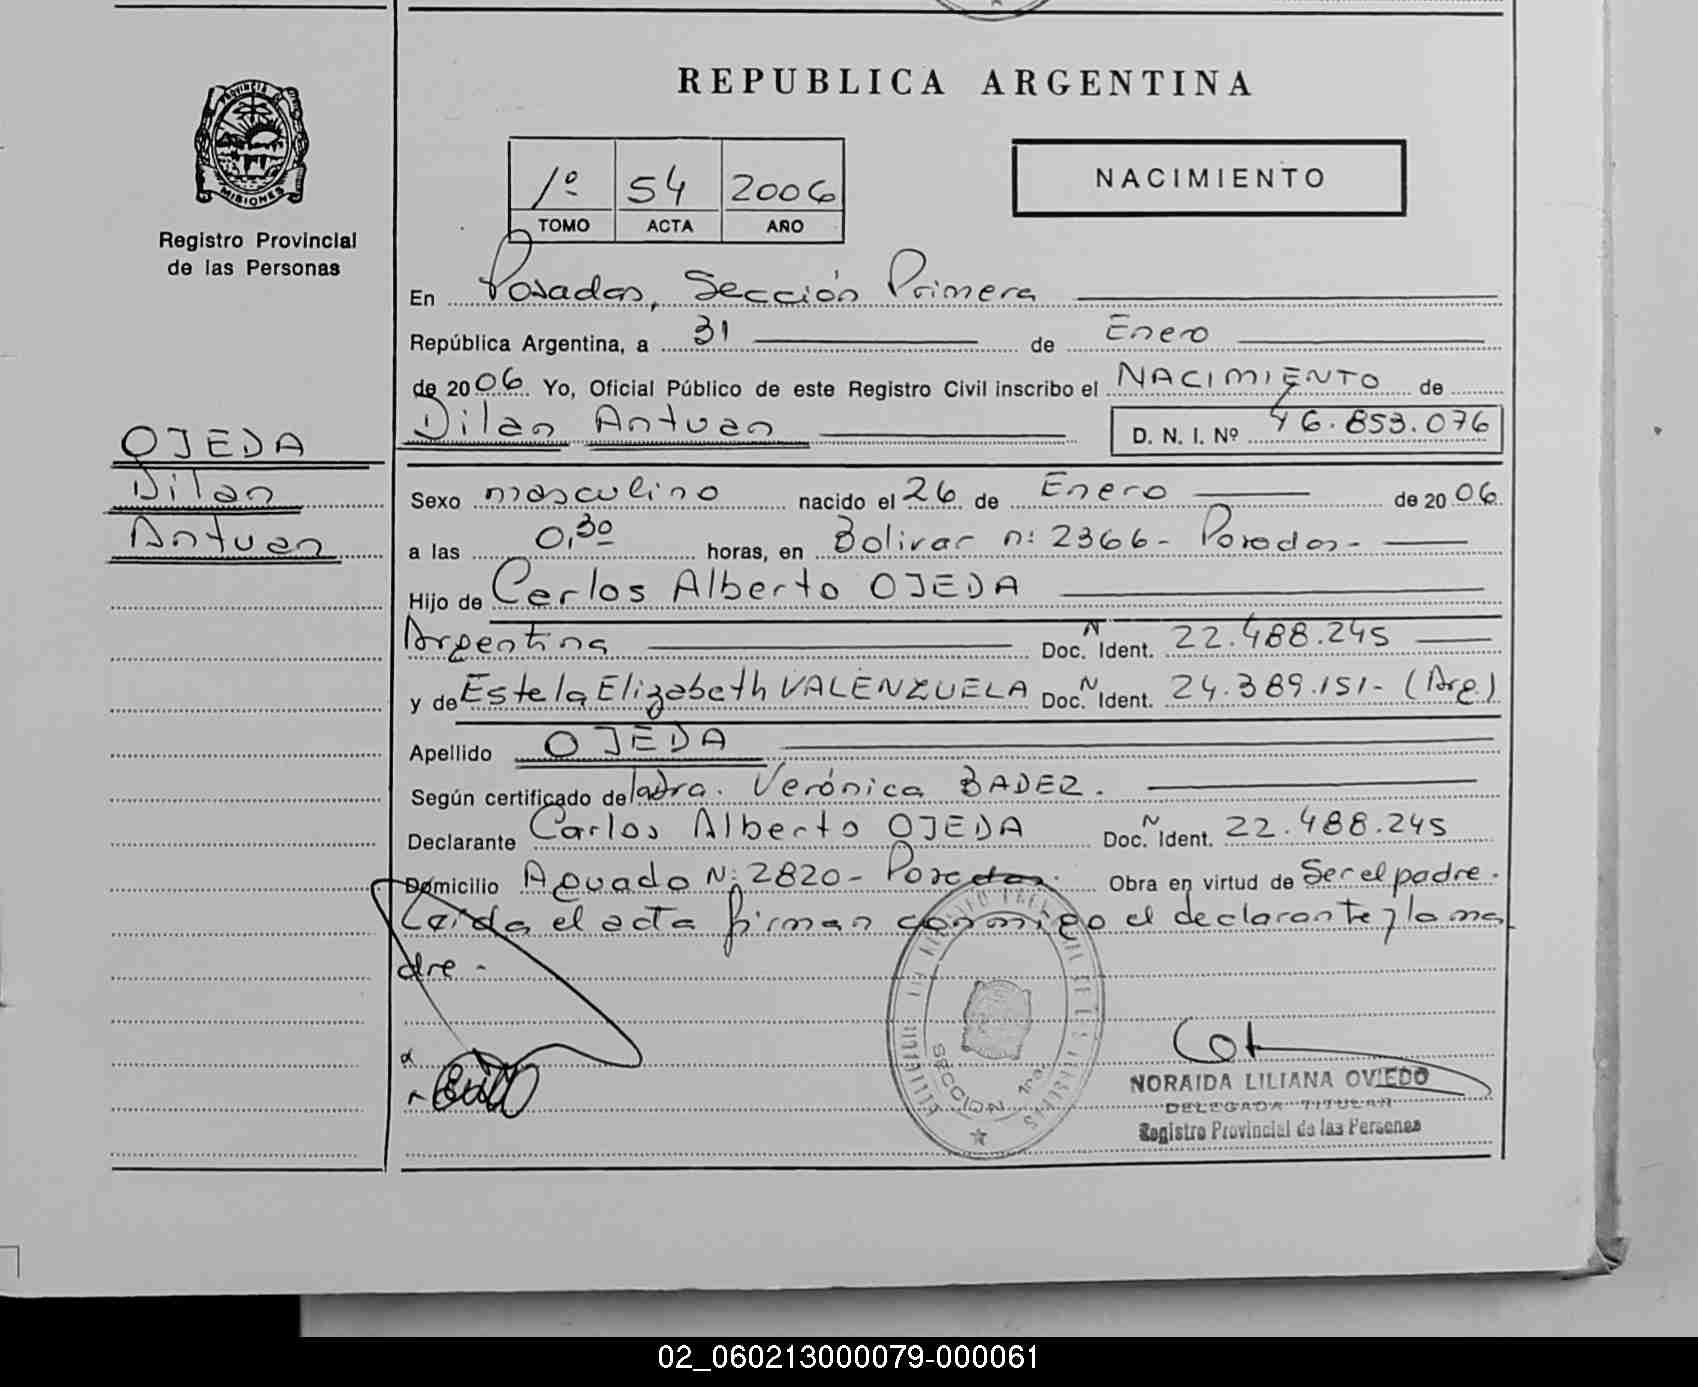 REPUBLICA ARGENTINA
PROVINCIA DE
MISIONES
Registro Provincial
de las Personas
1º 54 2006
TOMO ACTA AÑO
NACIMIENTO
En Posadas, Sección Primera
República Argentina, a 31 de Enero
de 2006 Yo, Oficial Público de este Registro Civil inscribo el NACIMIENTO de
Dilan Antuan
D. N. I. Nº 46.853.076
OJEDA
Dilan
Antuan
Sexo masculino nacido el 26 de Enero de 2006
a las 0,30 horas, en Bolivar n: 2366- Posadas-
Hijo de Carlos Alberto OJEDA
Argentina Doc. N Ident. 22.488.245
y de Estela Elizabeth VALENZUELA Doc. N Ident. 24.389.151- (Arg.)
Apellido OJEDA
Según certificado de la Dra. Verónica BADER.
Declarante Carlos Alberto OJEDA Doc. N Ident. 22.488.245
Domicilio Aguado N: 2820- Posadas. Obra en virtud de Ser el padre.
Leída el acta firman conmigo el declarante y la ma
dre-
SECCION 1ra.
NORAIDA LILIANA OVIEDO
DELEGADA TITULAR
Registro Provincial de las Personas
02_060213000079-000061